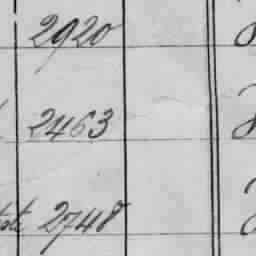 2920
2463
2748